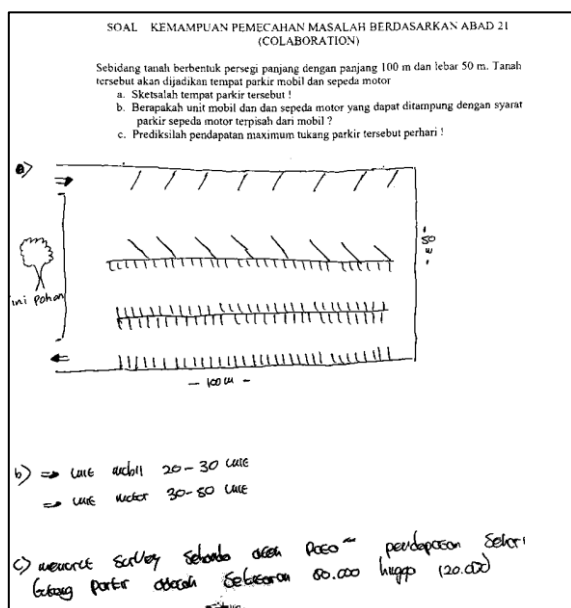 SOAL KEMAMPUAN PEMECAHAN MASALAH BERDASARKAN ABAD 21
(COLABORATION)
Sebidang tanah berbentuk persegi panjang dengan panjang 100 m dan lebar 50 m. Tanah
tersebut akan dijadikan tempat parkir mobil dan sepeda motor
a. Sketsalah tempat parkir tersebut !
b. Berapakah unit mobil dan dan sepeda motor yang dapat ditampung dengan syarat
parkir sepeda motor terpisah dari mobil ?
c. Prediksilah pendapatan maximum tukang parkir tersebut perhari !
a)
ini pohon
- 50 m -
- 100 m -
b) ⇒ unit mobil 20-30 unit
⇒ unit motor 30-50 unit
c) menurut survey
parkir adalah hingga 120.000